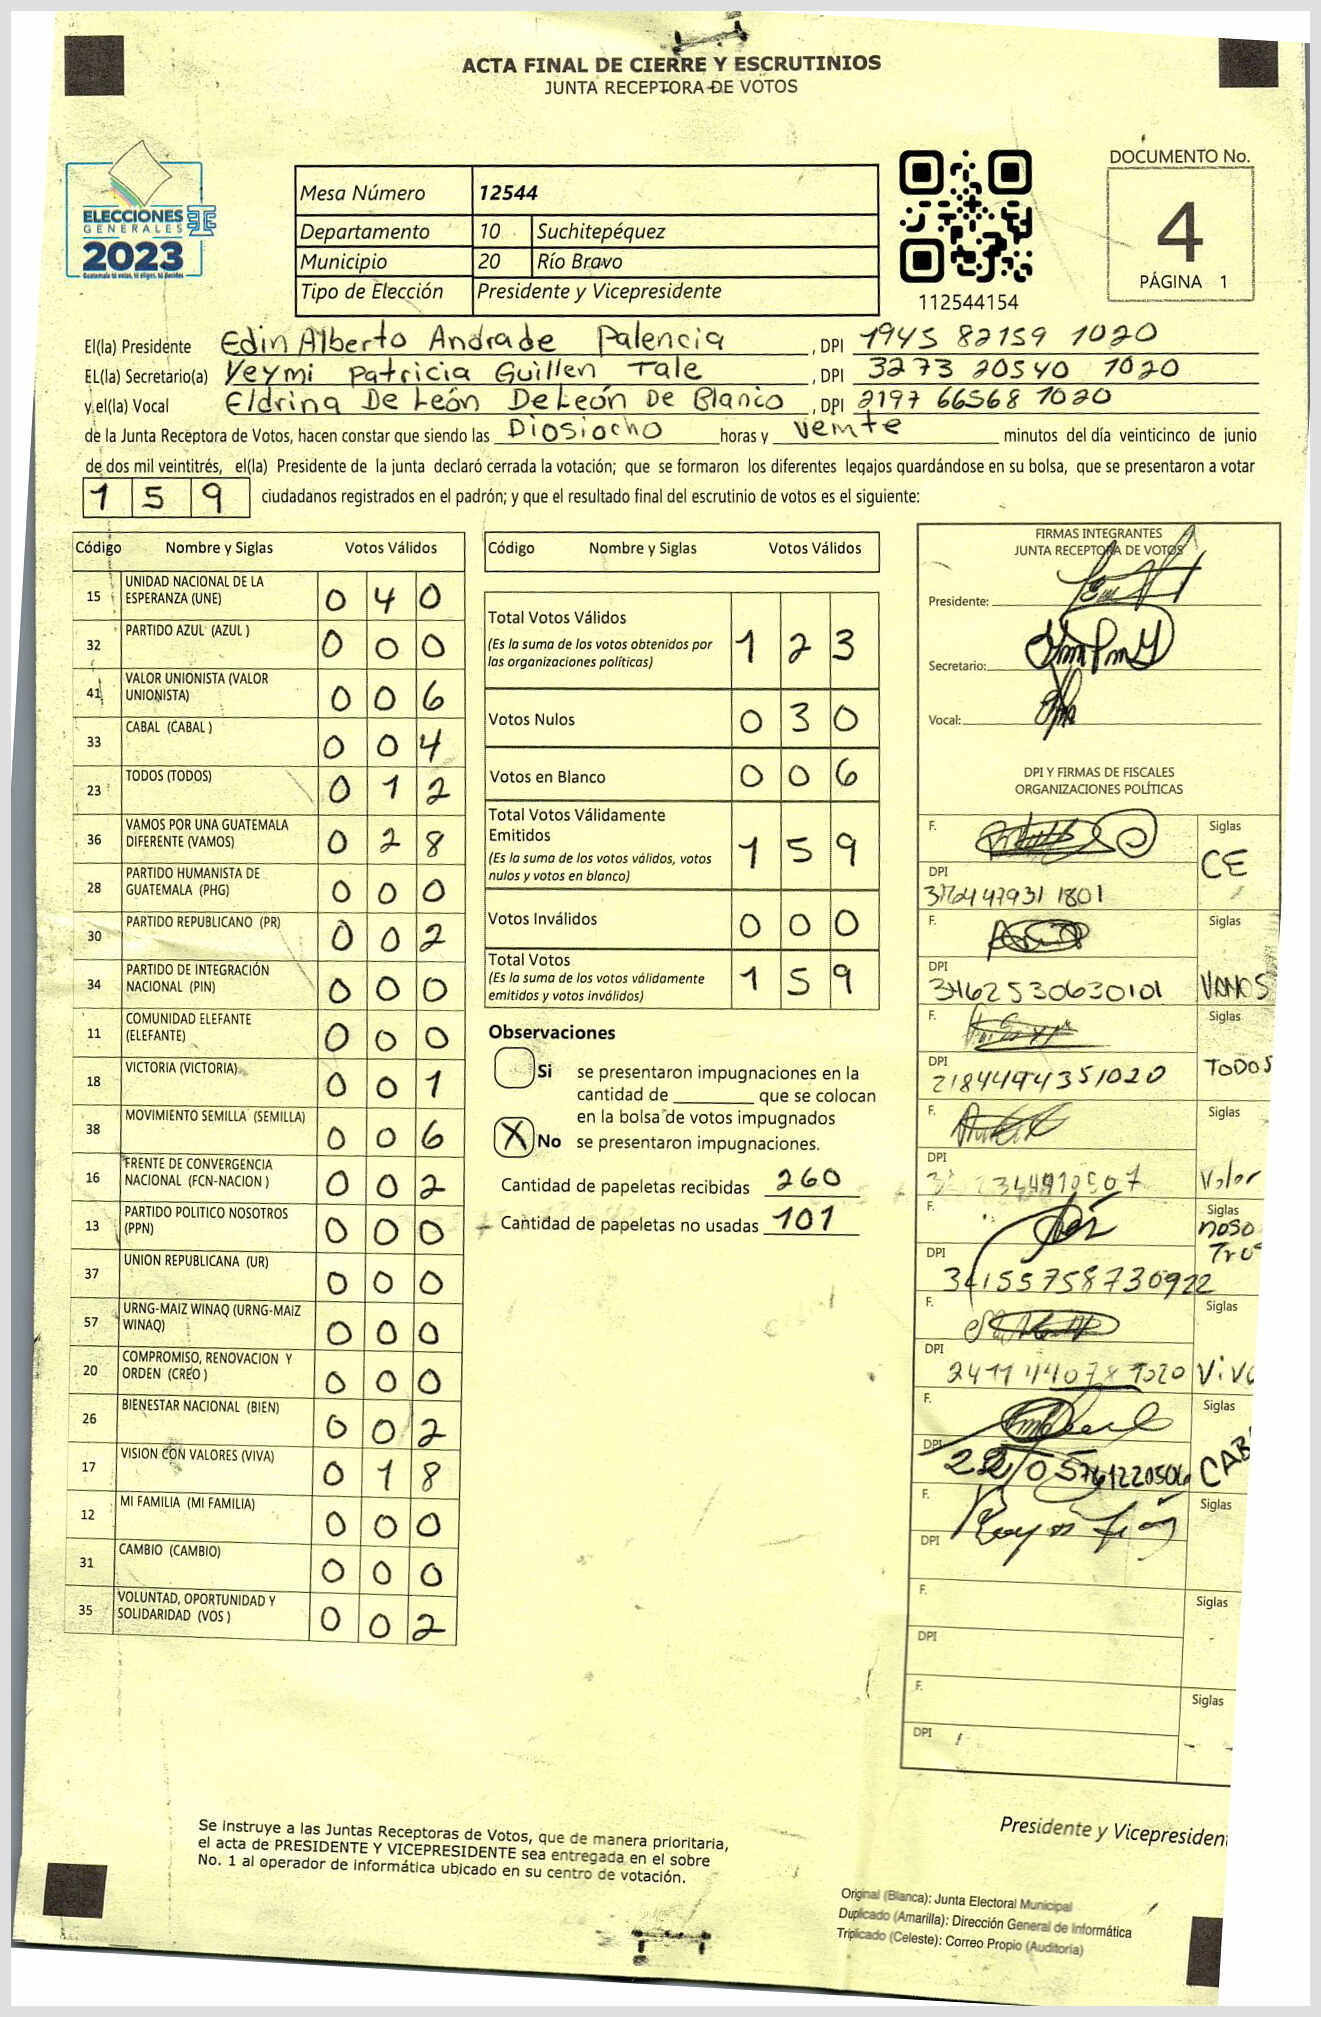 ACTA FINAL DE CIERRE Y ESCRUTINIOS
JUNTA RECEPTORA DE VOTOS
ELECCIONES
GENERALES
2023
Guatemala tú votas, tú eliges, tú decides
Mesa Número 12544
Departamento 10 Suchitepéquez
Municipio 20 Río Bravo
Tipo de Elección Presidente y Vicepresidente
112544154
DOCUMENTO No.
4
PÁGINA 1
El(la) Presidente Edin Alberto Andrade Palencia, DPI 1945 82159 1020
EL(la) Secretario(a) Yeymi Patricia Guillen Tale, DPI 3273 20540 1020
y el(la) Vocal Eldrina De León De León De Blanco, DPI 2197 66568 1020
de la Junta Receptora de Votos, hacen constar que siendo las Diosiocho horas y veinte minutos del día veinticinco de junio
de dos mil veintitrés, el(la) Presidente de la junta declaró cerrada la votación; que se formaron los diferentes legajos guardándose en su bolsa, que se presentaron a votar
159 ciudadanos registrados en el padrón; y que el resultado final del escrutinio de votos es el siguiente:
Código Nombre y Siglas Votos Válidos
15 UNIDAD NACIONAL DE LA ESPERANZA (UNE) 0 4 0
32 PARTIDO AZUL (AZUL ) 0 0 0
41 VALOR UNIONISTA (VALOR UNIONISTA) 0 0 6
33 CABAL (CABAL ) 0 0 4
23 TODOS (TODOS) 0 1 2
36 VAMOS POR UNA GUATEMALA DIFERENTE (VAMOS) 0 2 8
28 PARTIDO HUMANISTA DE GUATEMALA (PHG) 0 0 0
30 PARTIDO REPUBLICANO (PR) 0 0 2
34 PARTIDO DE INTEGRACIÓN NACIONAL (PIN) 0 0 0
11 COMUNIDAD ELEFANTE (ELEFANTE) 0 0 0
18 VICTORIA (VICTORIA) 0 0 1
38 MOVIMIENTO SEMILLA (SEMILLA) 0 0 6
16 FRENTE DE CONVERGENCIA NACIONAL (FCN-NACION ) 0 0 2
13 PARTIDO POLITICO NOSOTROS (PPN) 0 0 0
37 UNION REPUBLICANA (UR) 0 0 0
57 URNG-MAIZ WINAQ (URNG-MAIZ WINAQ) 0 0 0
20 COMPROMISO, RENOVACION Y ORDEN (CREO ) 0 0 0
26 BIENESTAR NACIONAL (BIEN) 0 0 2
17 VISION CON VALORES (VIVA) 0 1 8
12 MI FAMILIA (MI FAMILIA) 0 0 0
31 CAMBIO (CAMBIO) 0 0 0
35 VOLUNTAD, OPORTUNIDAD Y SOLIDARIDAD (VOS ) 0 0 2
Código Nombre y Siglas Votos Válidos
Total Votos Válidos 1 2 3
(Es la suma de los votos obtenidos por
las organizaciones políticas)
Votos Nulos 0 3 0
Votos en Blanco 0 0 6
Total Votos Válidamente
Emitidos 1 5 9
(Es la suma de los votos válidos, votos
nulos y votos en blanco)
Votos Inválidos 0 0 0
Total Votos 1 5 9
(Es la suma de los votos válidamente
emitidos y votos inválidos)
Observaciones
Si se presentaron impugnaciones en la
cantidad de ________ que se colocan
en la bolsa de votos impugnados
X No se presentaron impugnaciones.
Cantidad de papeletas recibidas 260
Cantidad de papeletas no usadas 101
FIRMAS INTEGRANTES
JUNTA RECEPTORA DE VOTOS
Presidente:
Secretario:
Vocal:
DPI Y FIRMAS DE FISCALES
ORGANIZACIONES POLÍTICAS
F. Siglas
CE
DPI
F. Siglas
DPI
3462530630101 VAMOS
F. Siglas
DPI TODOS
2184494351020
F. Siglas
DPI
Valor
F. Siglas
noso
Tros
DPI
34155758730922
F. Siglas
DPI
F. Siglas
DPI
F. Siglas
DPI
F. Siglas
DPI
F. Siglas
DPI
Se instruye a las Juntas Receptoras de Votos, que de manera prioritaria,
el acta de PRESIDENTE Y VICEPRESIDENTE sea entregada en el sobre
No. 1 al operador de informática ubicado en su centro de votación.
Presidente y Vicepresiden
Original (Blanca): Junta Electoral Municipal
Duplicado (Amarilla): Dirección General de Informática
Triplicado (Celeste): Correo Propio (Auditoría)